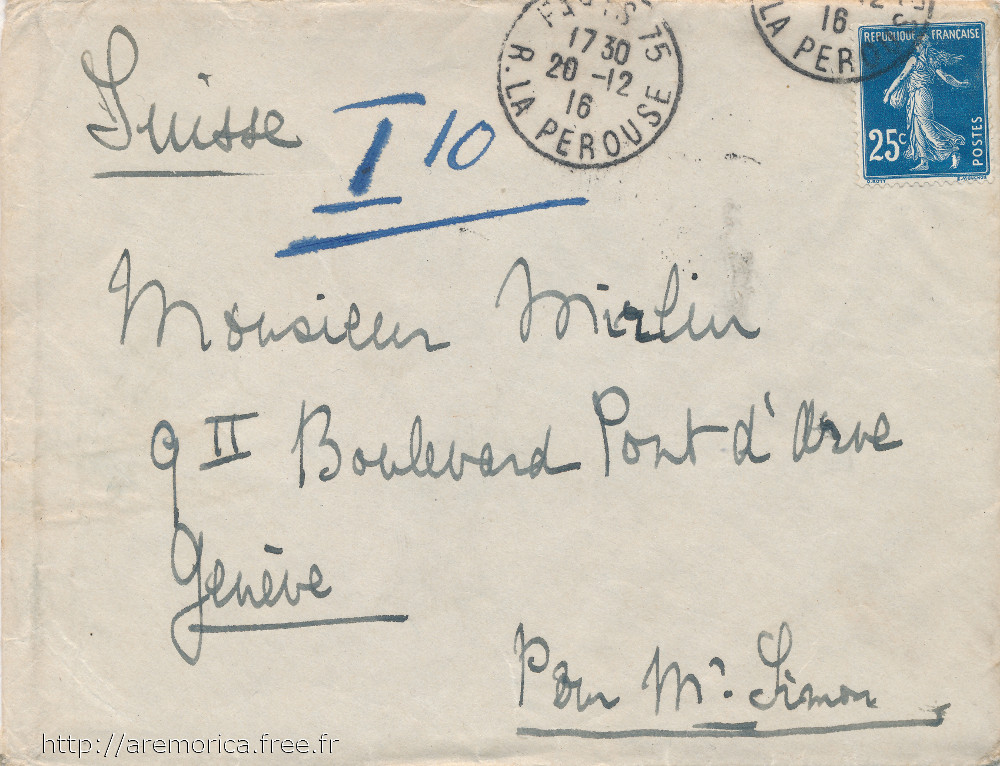 PARIS 75
17 30
20 -12
16
R. LA PEROUSE
16
LA PEROUSE
REPUBLIQUE FRANÇAISE
25c
POSTES
Suisse
T 10
Monsieur Mirlin
9 II Boulevard Pont d'Arve
Genève
Pour Mr. Simon
http://aremorica.free.fr